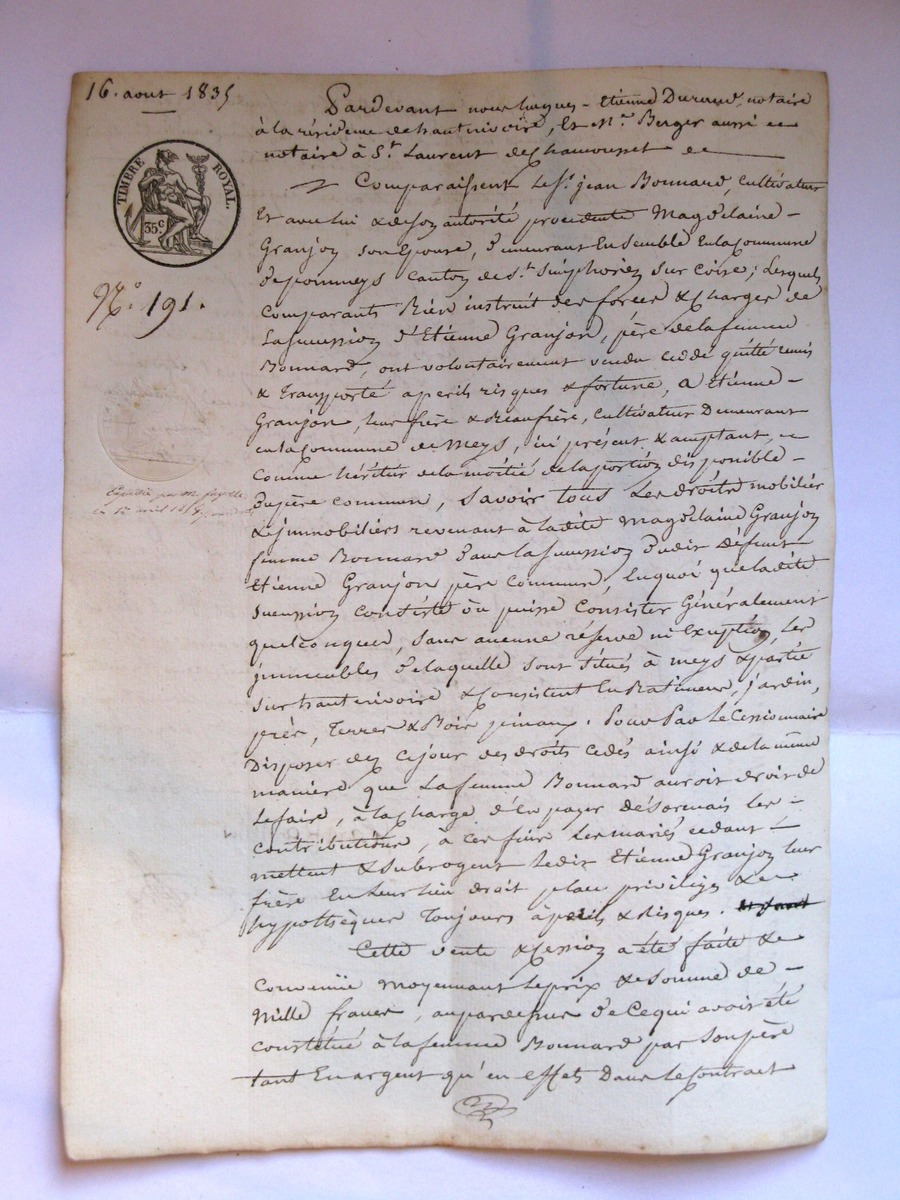 16. aout 1835
Pardevant nous Jacques-Etienne Durand, notaire
à la résidence de hauterivoire, Et Me. Berger aussi
notaire à St. Laurent de Chamousset
TIMBRE ROYAL.
35c
Comparaissent le Sr. jean Bonnard, cultivateur
Et avec lui & de son autorité procedente Magdelaine
Granjon son Epouse, demeurant Ensemble En la Commune
de pommeys canton de St. Simphorien sur Coise; Lesquels
No. 191.
comparants Bien instruit des forces & Charges de
La succession d'Etienne Granjon, père de la femme
Bonnard, ont volontairement vendu cédé quitté remis
& transporté a perils risques & fortune, a Etienne
Granjon, leur frère & Beaufrère, cultivateur Demeurant
en la Commune de Meys, ici présent & acceptant,
Comme héritier de la moitié de la portion disponible
du père commun, Savoir tous les droits mobilier
Expédié par Me
en 12 avril
& jmmobiliers revenant à ladite Magdelaine Granjon
femme Bonnard dans la succession dudit Défunt
Etienne Granjon père Commun, En quoi que ladite
Succession Consiste ou puisse Consister Généralement
quelconques, sans aucune réserve ni Exception, les
jmmeubles de laquelle sont situés à meys & partie
sur hauterivoire & Consistent En Batiments, jardin,
prés, Terres & Bois pinaux. Pour Par le Cessionnaire
Disposer dez ce jour des droits cedés ainsi & de la même
maniere que La femme Bonnard auroit droit de
Le faire, à la Charge d'En payer désormais les
contributions, à ces fins les mariés cedant
mettent & subrogent ledit Etienne Granjon leur
frère En leur lieu droit place privilèges &
hypothèques Toujours à perils & Risques.
Cette vente & Cession a été faite &
Convenüe moyennant le prix & Somme de
Mille francs, au par dessus de Ce qui avoit été
constitué à la femme Bonnard par Son père
tant En argent qu'en effets Dans le Contract